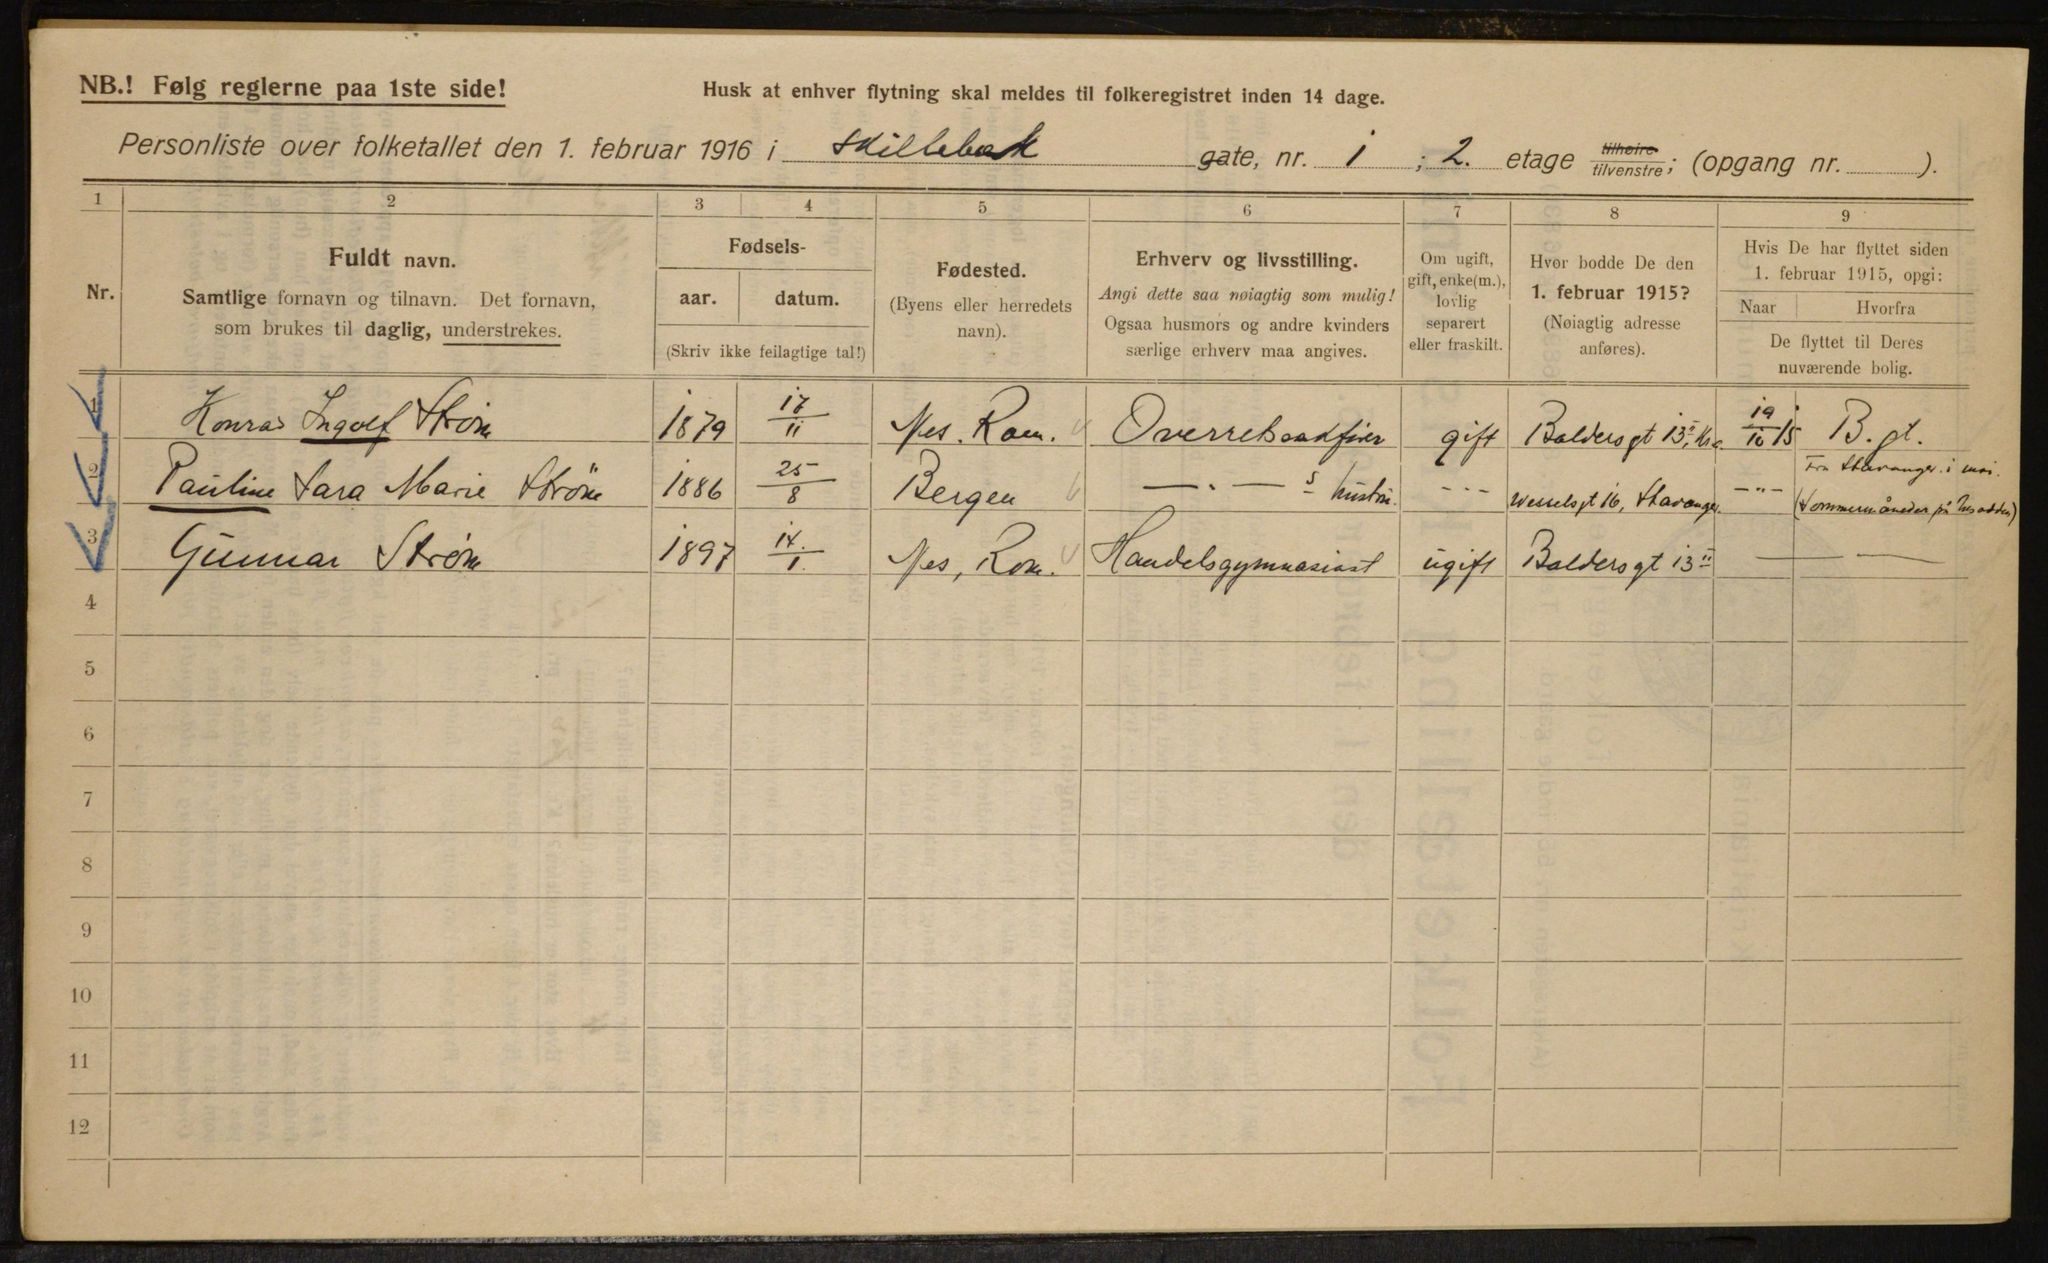 NB.! Følg reglerne paa 1ste side!
Husk at enhver flytning skal meldes til folkeregistret inden 14 dage.
Personliste over folketallet den 1. februar 1916 i Skillebæk gate, nr. 1 ; 2. etage tilhøire/tilvenstre; (opgang nr. ).
1 2 3 4 5 6 7 8 9
Nr.
Fuldt navn.
Samtlige fornavn og tilnavn. Det fornavn,
som brukes til daglig, understrekes.
Fødsels-
aar. datum.
(Skriv ikke feilagtige tal!)
Fødested.
(Byens eller herredets
navn).
Erhverv og livsstilling.
Angi dette saa nøiagtig som mulig!
Ogsaa husmors og andre kvinders
særlige erhverv maa angives.
Om ugift,
gift, enke(m.),
lovlig
separert
eller fraskilt.
Hvor bodde De den
1. februar 1915?
(Nøiagtig adresse
anføres).
Hvis De har flyttet siden
1. februar 1915, opgi:
Naar Hvorfra
De flyttet til Deres
nuværende bolig.
1 Konrad Ingolf Strøm 1879 17/11 Nes. Rom. Overretssakfører gift Baldersgt 13 II, Kra 19/10 15 B. gt.
2 Pauline Sara Marie Ström 1886 25/8 Bergen —"— s hustru. -"- Wesselsgt 16, Stavanger. —"— Fra Stavanger i mai.
(Sommermåneder på Nesodden)
3 Gunnar Strøm 1897 14./1. Nes, Rom. Handelsgymnasiast ugift Baldersgt 13 II — —
4
5
6
7
8
9
10
11
12